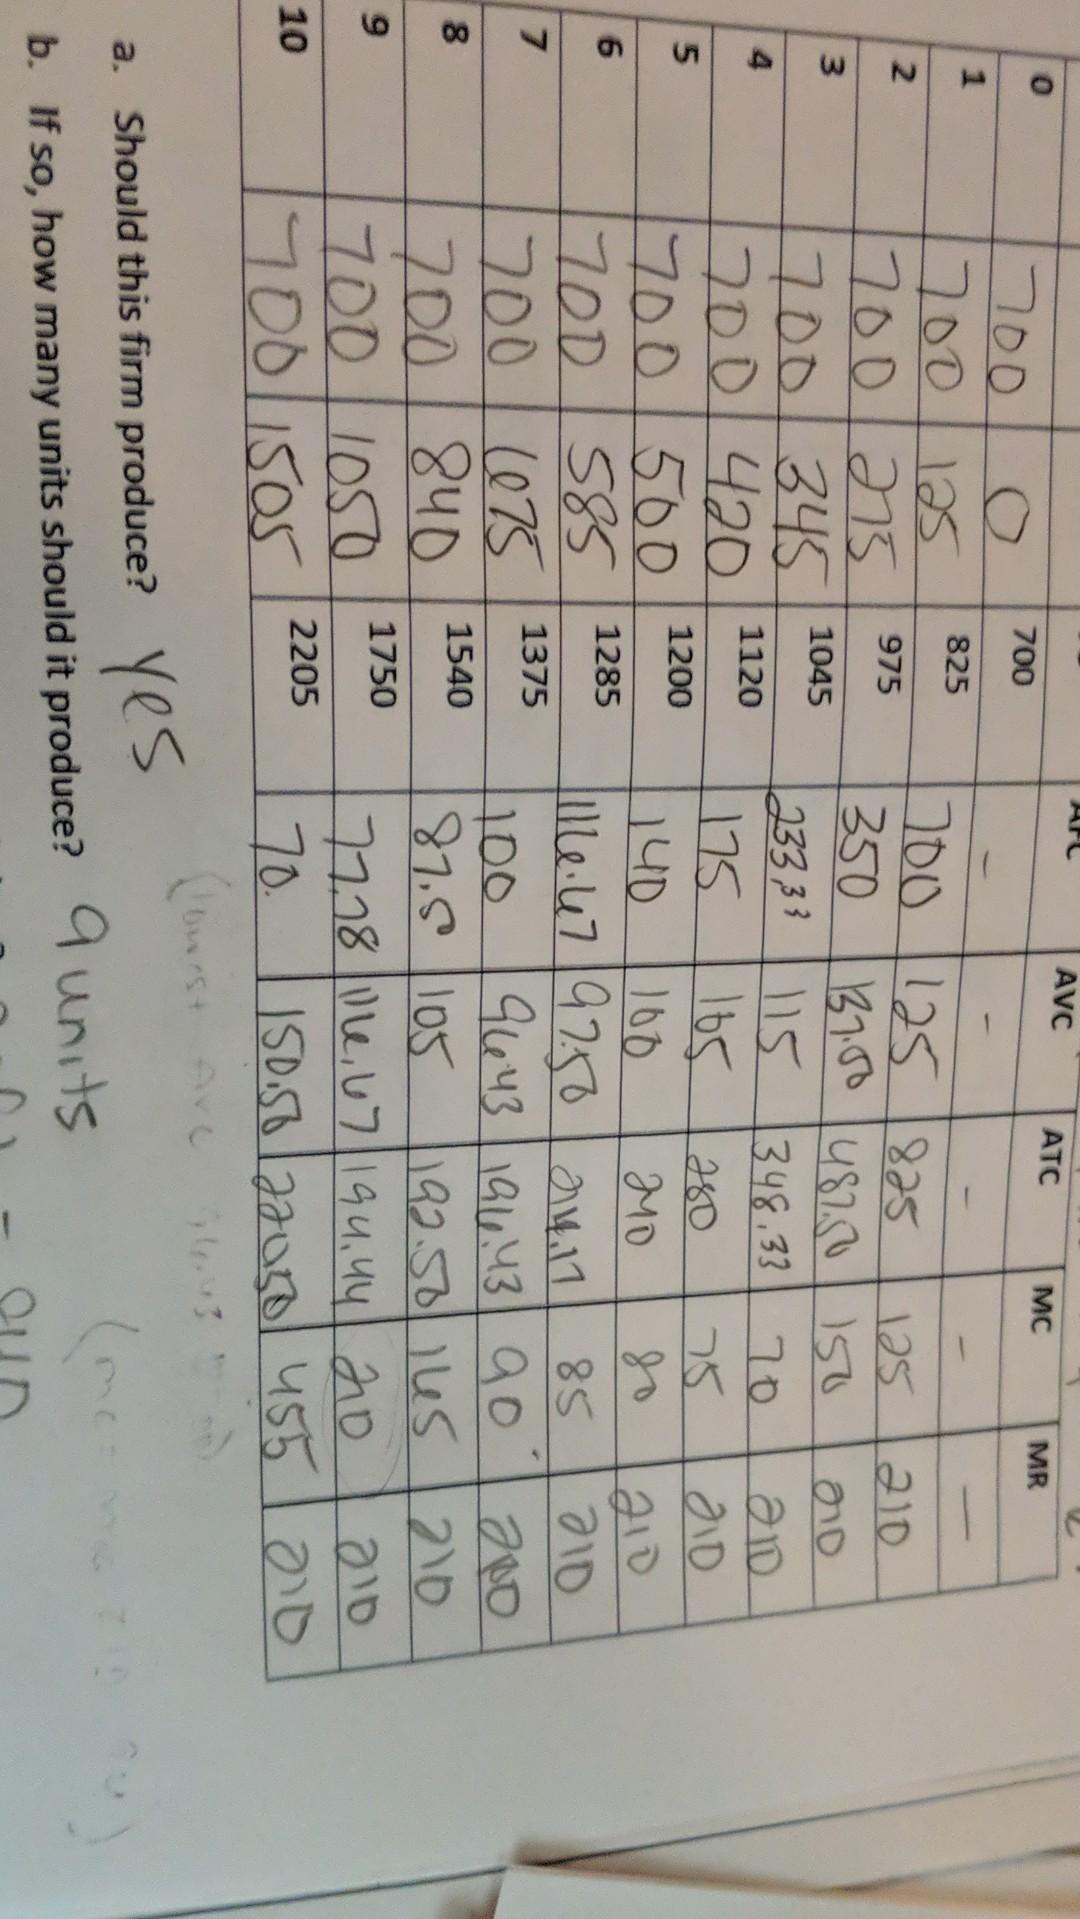 AVC ATC MC MR
0 700 0 700 - - - - -
1 700 125 825 700 125 825 125 210
2 700 275 975 350 137.50 487.50 150 210
3 700 345 1045 233.33 115 348.33 70 210
4 700 420 1120 175 105 280 75 210
5 700 500 1200 140 100 240 80 210
6 700 585 1285 116.67 97.50 214.17 85 210
7 700 675 1375 100 96.43 196.43 90 210
8 700 840 1540 87.50 105 192.50 165 210
9 700 1050 1750 77.78 116.67 194.44 210 210
10 700 1505 2205 70. 150.50 220.50 455 210
a. Should this firm produce? Yes
b. If so, how many units should it produce? 9 units